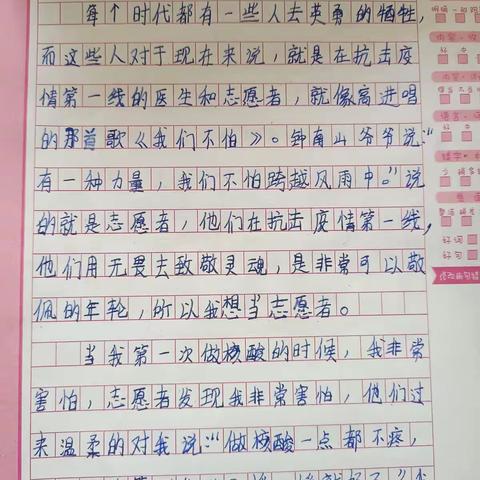 每个时代都有一些人去英勇的牺牲,
而这些人对于现在来说,就是在抗击疫
情第一线的医生和志愿者,就像高进唱
的那首歌《我们不怕》。钟南山爷爷说:“
有一种力量,我们不怕跨越风雨中。”说
的就是志愿者,他们在抗击疫情第一线,
他们用无畏去致敬灵魂,是非常可以敬
佩的年轮,所以我想当志愿者。
当我第一次做核酸的时候,我非常
害怕,志愿者发现我非常害怕,他们过
来温柔的对我说:“做核酸一点都不疼,